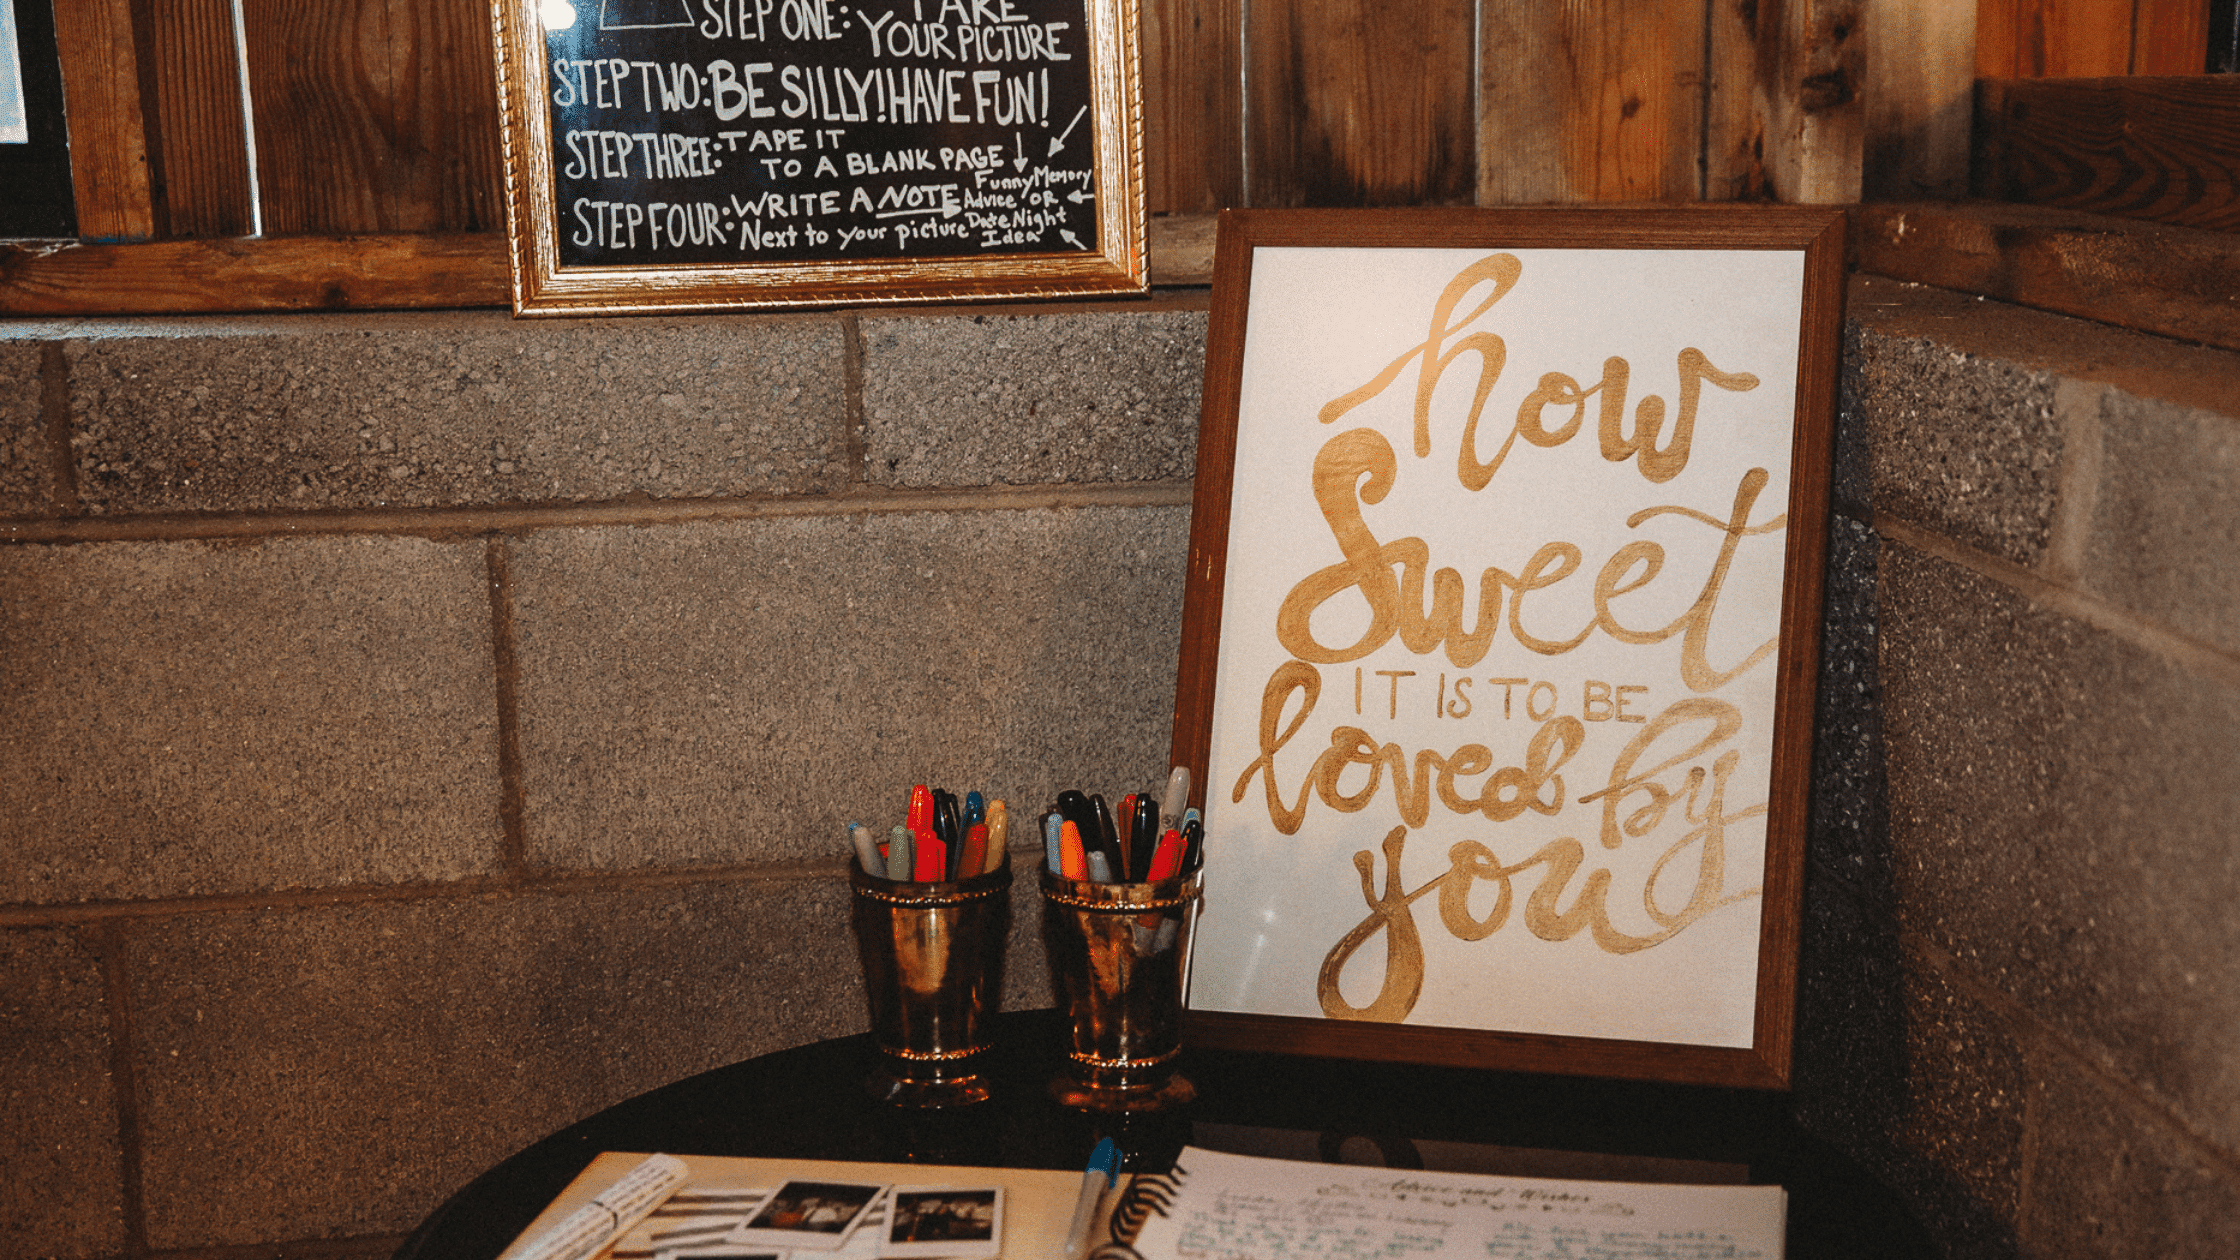 STEP ONE: TAKE
YOUR PICTURE
STEP TWO: BE SILLY! HAVE FUN!
STEP THREE: TAPE IT
TO A BLANK PAGE
STEP FOUR: WRITE A NOTE
Next to your picture
Funny Memory
Advice OR
Date Night
Idea
how
Sweet
IT IS TO BE
loved by
you
Advice and Wishes